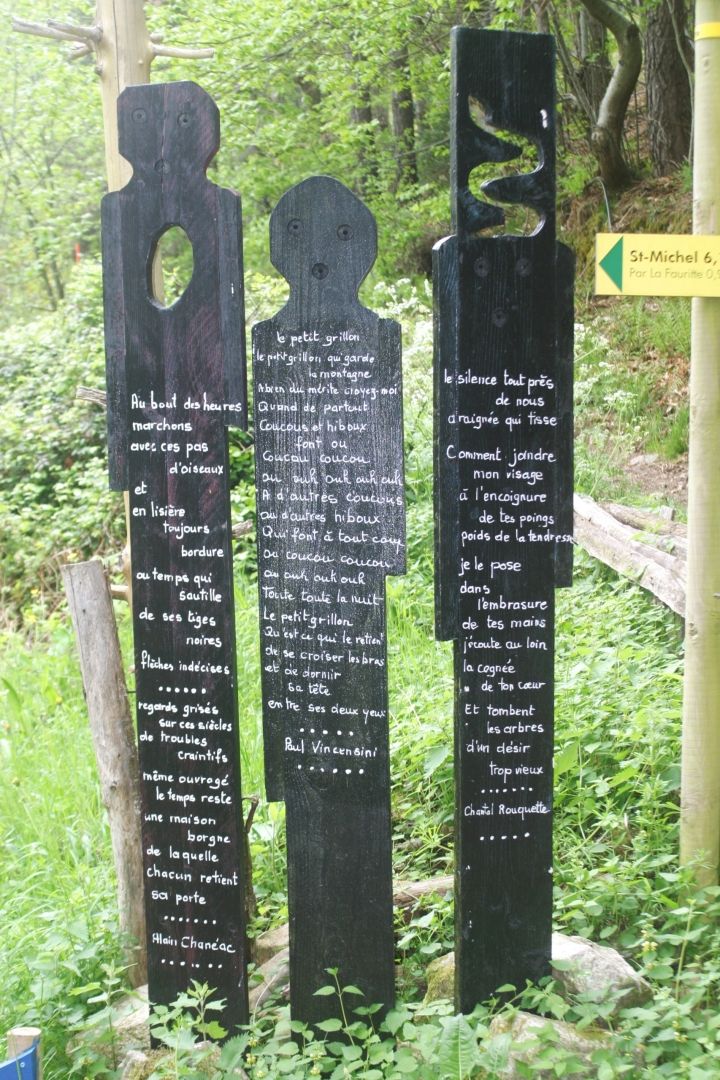 Au bout des heures
marchons
avec ces pas
d'oiseaux
et
en lisière
toujours
bordure
ou temps qui
sautille
de ses tiges
noires
flèches indécises
......
regards grisés
sur ces siècles
de troubles
craintifs
même ouvragé
le temps reste
une maison
borgne
de laquelle
chacun retient
sa porte
.......
Alain Chanéac
......
le petit grillon
le petit grillon qui garde
la montagne
A bien du mérite croyez-moi
Quand de partout
Coucous et hiboux
font ou
Coucou coucou
ou ouh ouh ouh ouh
A d'autres coucous
ou d'autres hiboux
Qui font à tout coup
Ou coucou coucou
ou ouh ouh ouh
Toute toute la nuit
Le petit grillon
Qu'est ce qui le retient
de se croiser les bras
et de dormir
sa tête
entre ses deux yeux
.....
Paul Vincensini
......
le silence tout près
de nous
araignée qui tisse
Comment joindre
mon visage
à l'encoignure
de tes poings
poids de la tendresse
je le pose
dans
l'embrasure
de tes mains
j'écoute au loin
la cognée
de ton cœur
Et tombent
les arbres
d'un désir
trop vieux
......
Chantal Rouquette
.....
St-Michel 6,
Par La Fauritte 0,